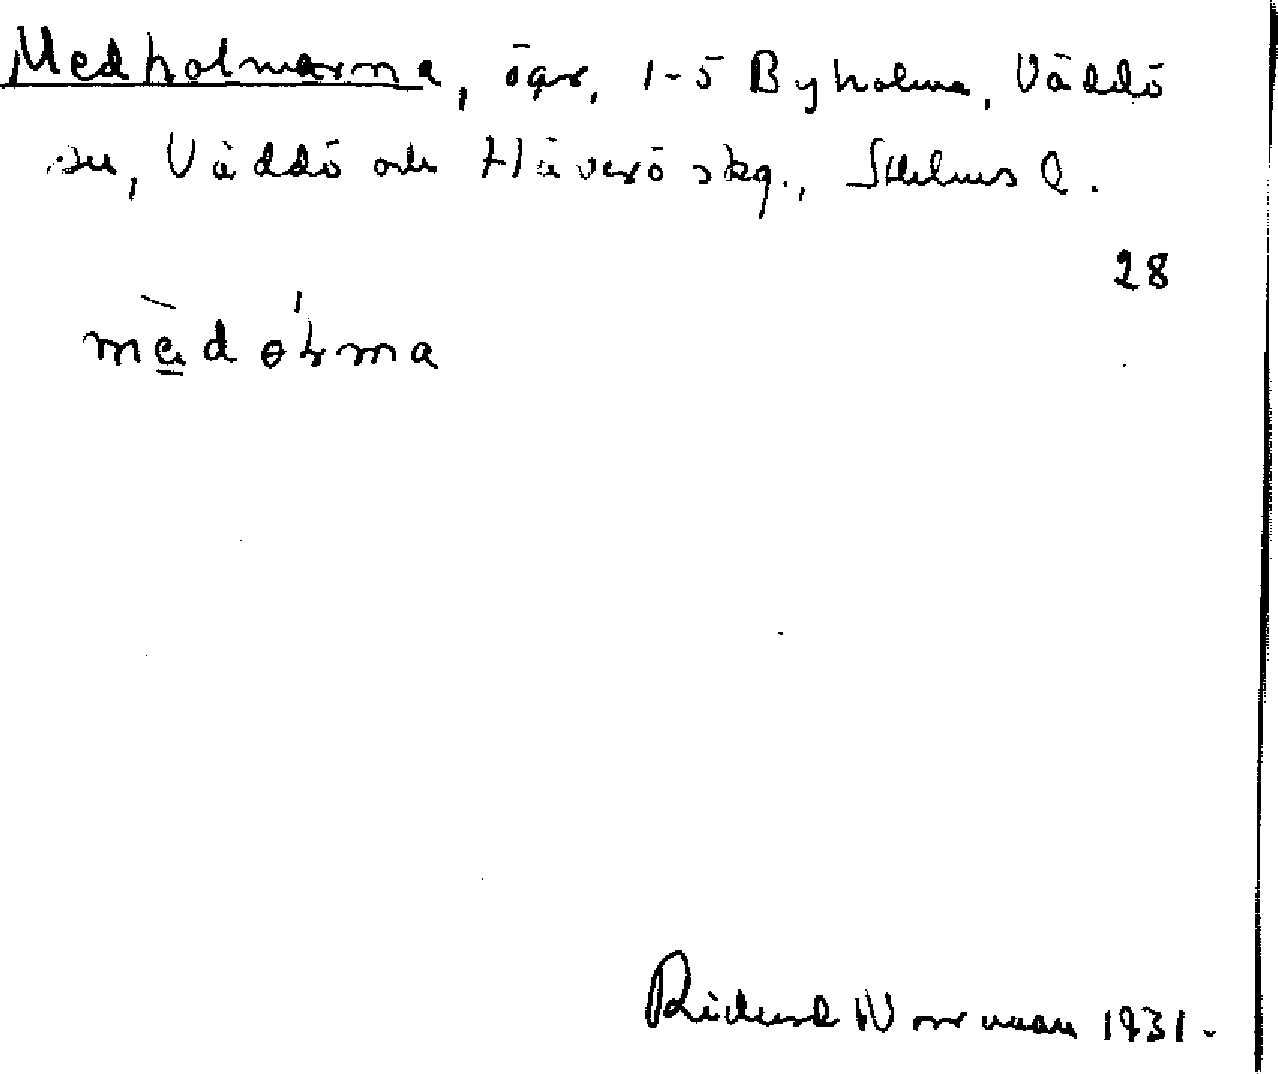 Medholmarna, ögr, 1-5 Byholma, Väddö
sn, Väddö och Häverö skg., Sthlms l.
28
mèdɵ́ɽma
Richard Norrman 1931.